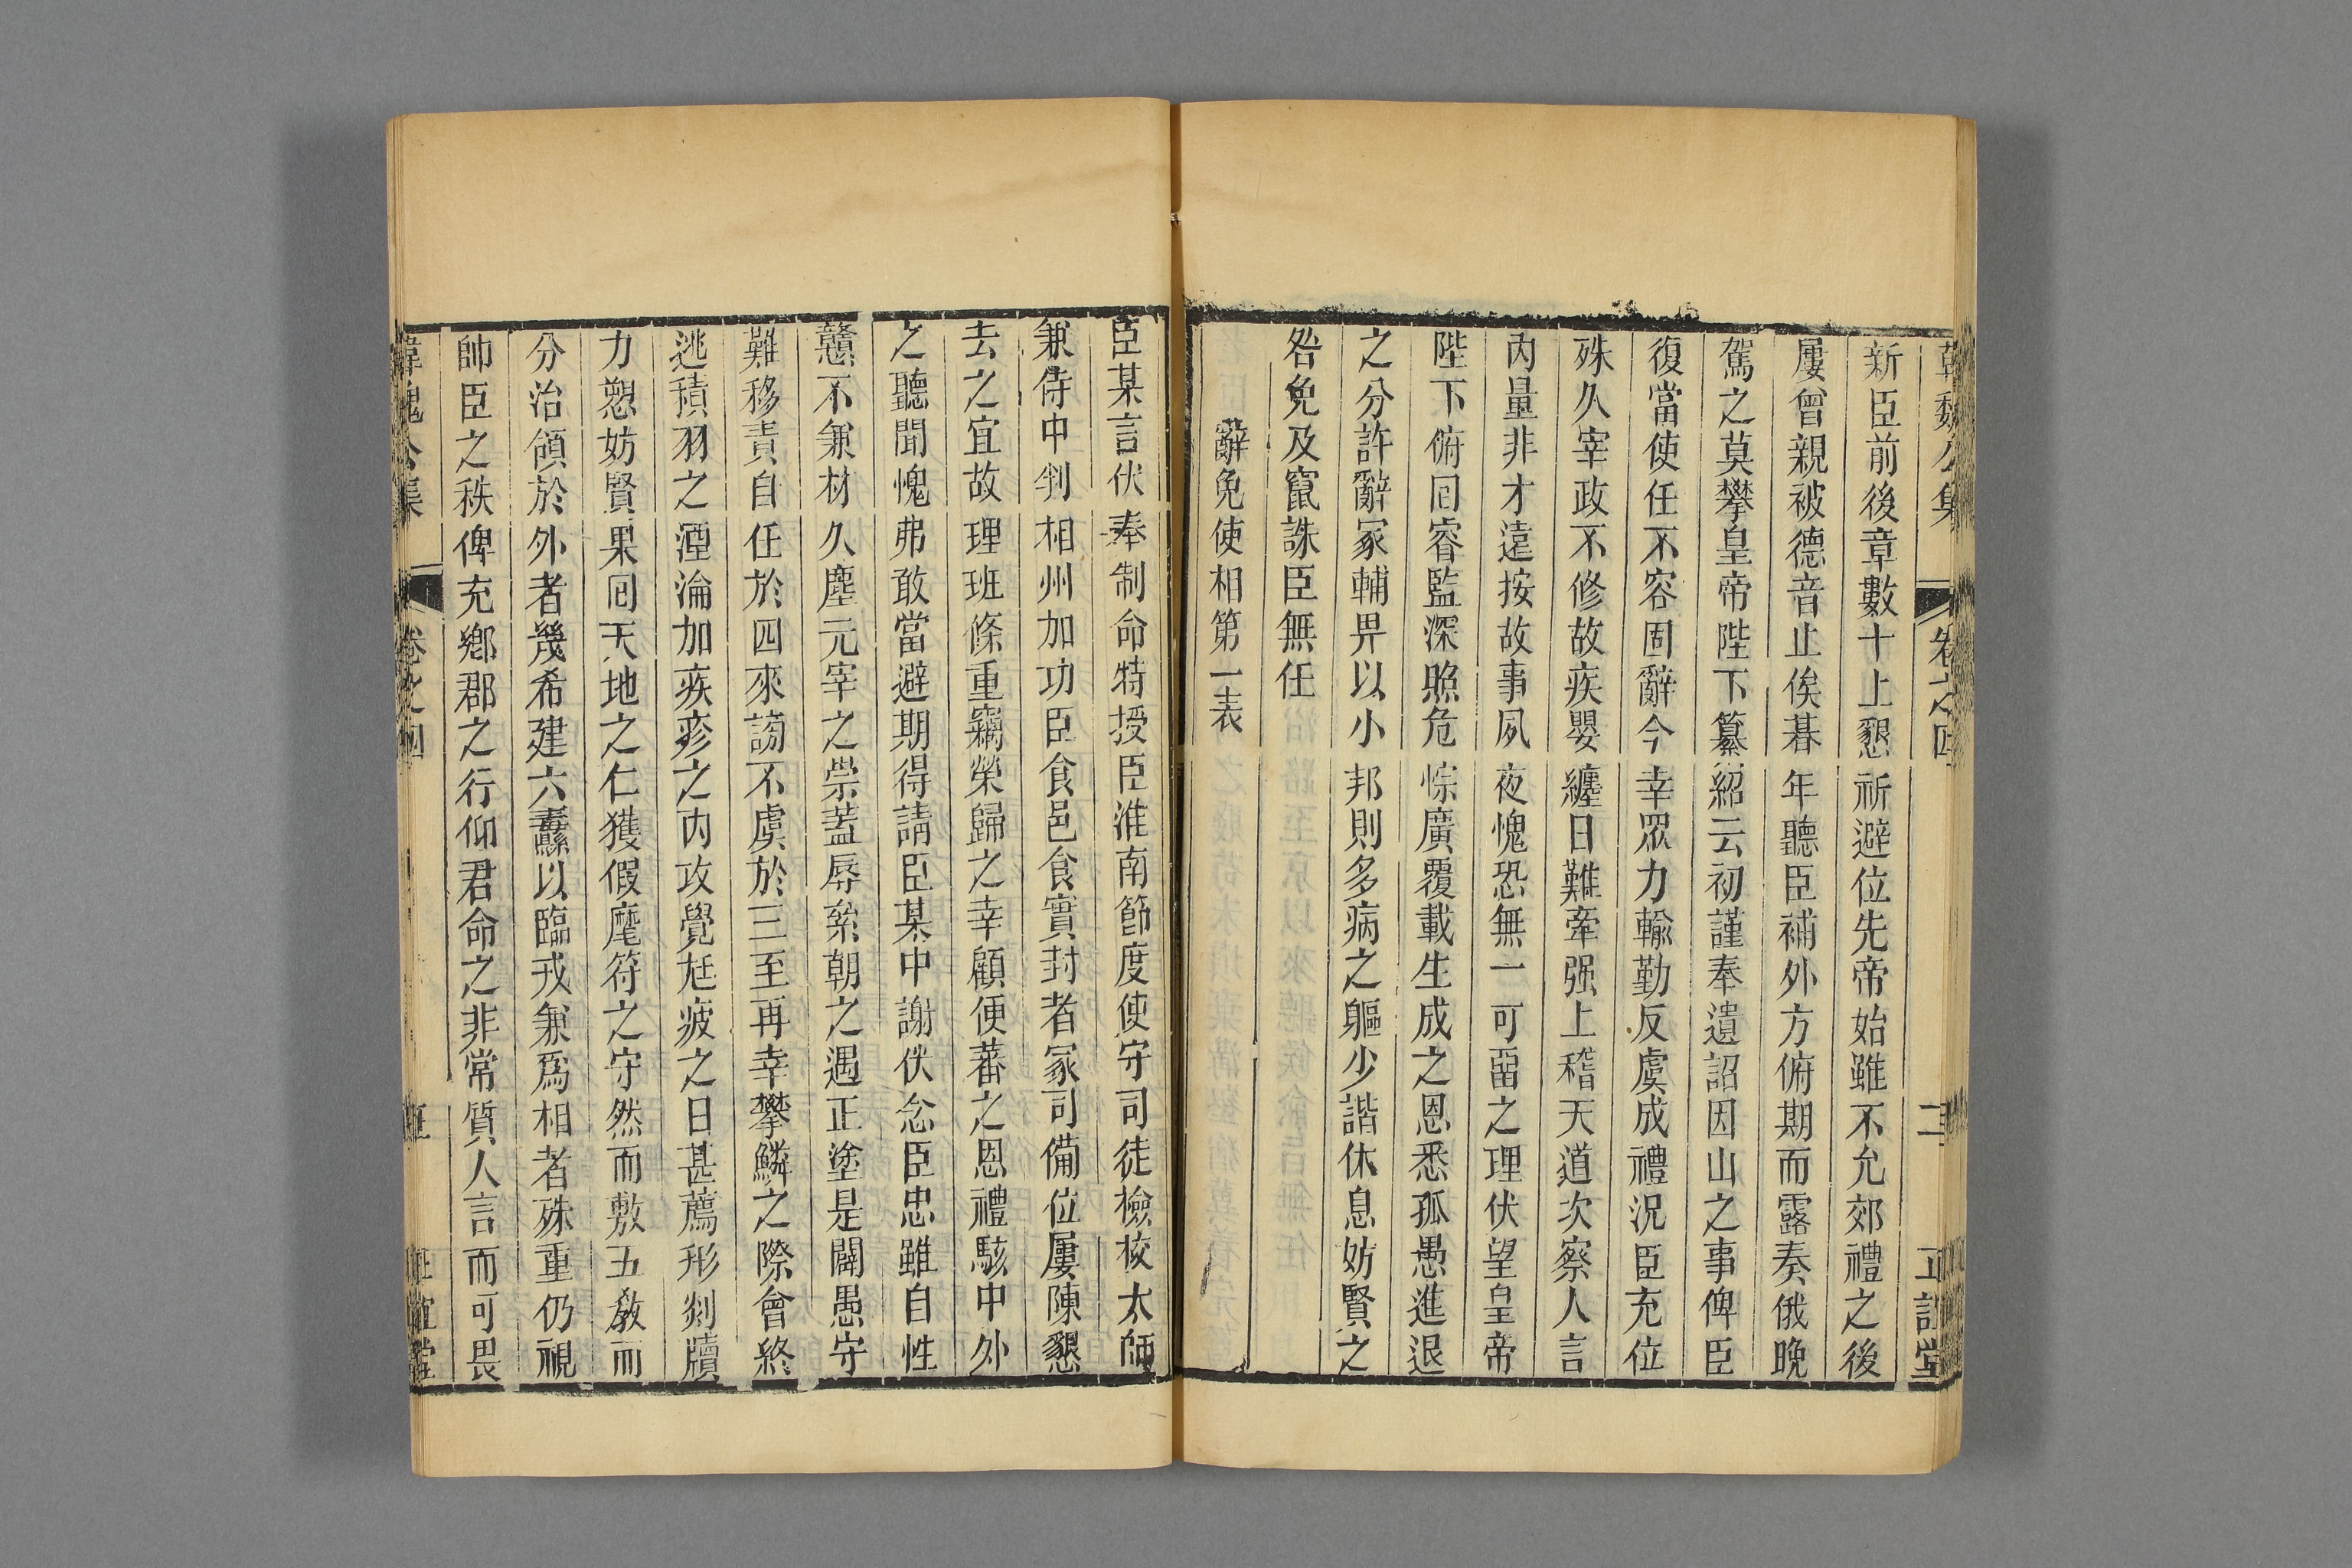 韓魏公集 卷之四 二 正誼堂
新臣前後章數十上懇祈避位先帝始雖不允郊禮之後
屢曾親被德音止俟朞年聽臣補外方俯期而露奏俄晚
駕之莫攀皇帝陛下纂紹云初謹奉遺詔因山之事俾臣
復當使任不容固辭今幸眾力輸勤反虞成禮況臣充位
殊久宰政不修故疾嬰纏日難牽强上稽天道次察人言
內量非才遠按故事夙夜愧恐無一可畱之理伏望皇帝
陛下俯囘睿監深照危悰廣覆載生成之恩悉孤愚進退
之分許辭冢輔畀以小邦則多病之軀少諧休息妨賢之
咎免及竄誅臣無任
辭免使相第一表
臣某言伏奉制命特授臣淮南節度使守司徒檢校太師
兼侍中判相州加功臣食邑食實封者冢司備位屢陳懇
去之宜故理班條重竊榮歸之幸顧便蕃之恩禮駭中外
之聽聞愧弗敢當避期得請臣某中謝伏念臣忠雖自性
戇不兼材久塵元宰之崇蓋辱累朝之遇正塗是闢愚守
難移責自任於四來謗不虞於三至再幸攀鱗之際會終
逃積羽之湮淪加疾疹之內攻覺尫疲之日甚薦形剡牘
力愬妨賢果囘天地之仁獲假麾符之守然而敷五敎而
分治領於外者幾希建六纛以臨戎兼爲相者殊重仍視
帥臣之秩俾充鄉郡之行仰君命之非常質人言而可畏
韓魏公集 卷之四